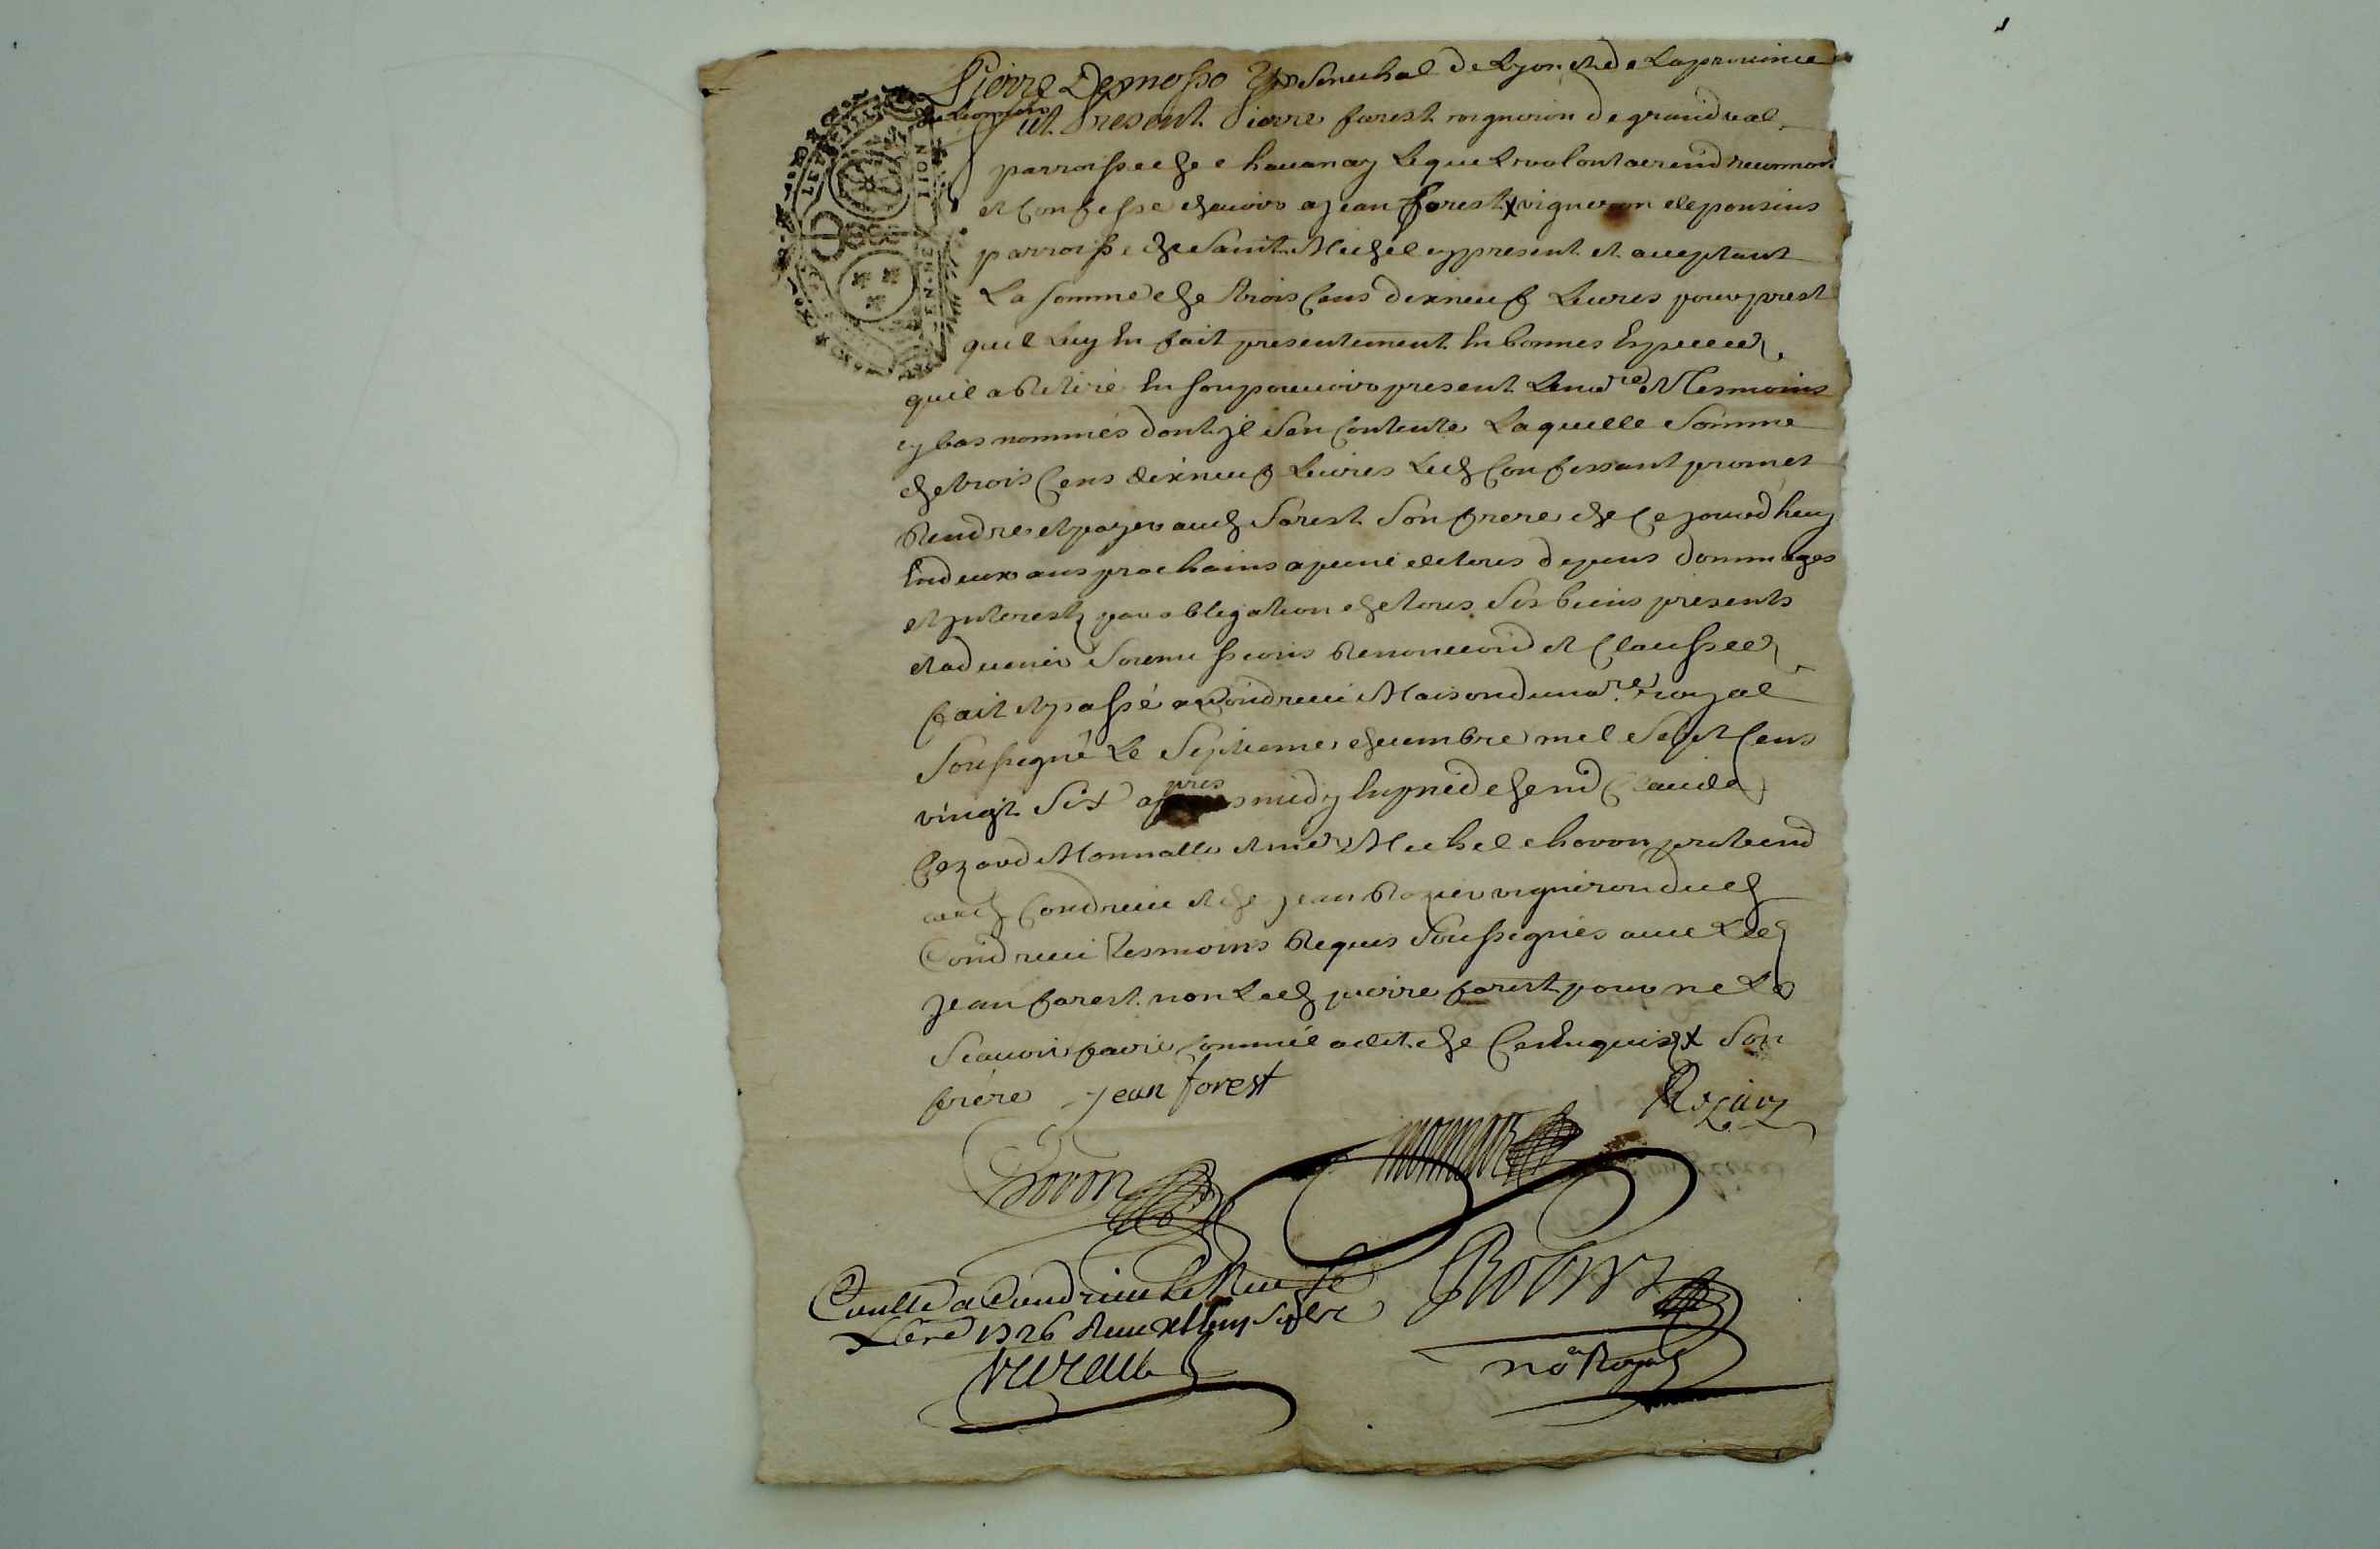 Pierre Desmosso Senechal de Lyon et de La province
de Lionnois
fut Present Pierre forest vigneron de grandval
parroisse de chavanay Lequel volontairemd reconnoit
et Confesse debvoir a jean forest x vigneron de ponsins
parroisse de Saint Michel cy present et aceptant
La somme de trois Cens dixneuf Livres pour prest
quil Luy En fait presentement En bonnes Especces
quil a Retiré En son pouvoir present Le nore et Tesmoins
cy bas nommés dont jl S'en Contente Laquelle Somme
de trois Cens dixneuf Livres Led Confessant promet
Rendre et payer aud forest Son frere de Ce jourdhuy
En deux ans prochains a peine de tous depens dommages
et jnterests par obligation de tous Ses biens presents
et advenir Soumissions Renonciond et Clausses
fait et passé a Condrieu Maison du nore royal
Soussigné Le Septieme decembre mil Sept Cens
vingt Six apres midy En pnce de md Claude
pres
Monnalle et me Michel chovon praticnd
aud Condrieu et de jean Rozier vigneron dud
Condrieu Tesmoins Requis Soussignés avec Led
jean forest non Led pierre forest pour ne Le
Scavoir faire Comme il a dit de Ce Enquis x Son
frere jean forest
Chovon
Rozier
Conllé a Condrieu Le Neuf
Xbre 1726 Receu
no Royal